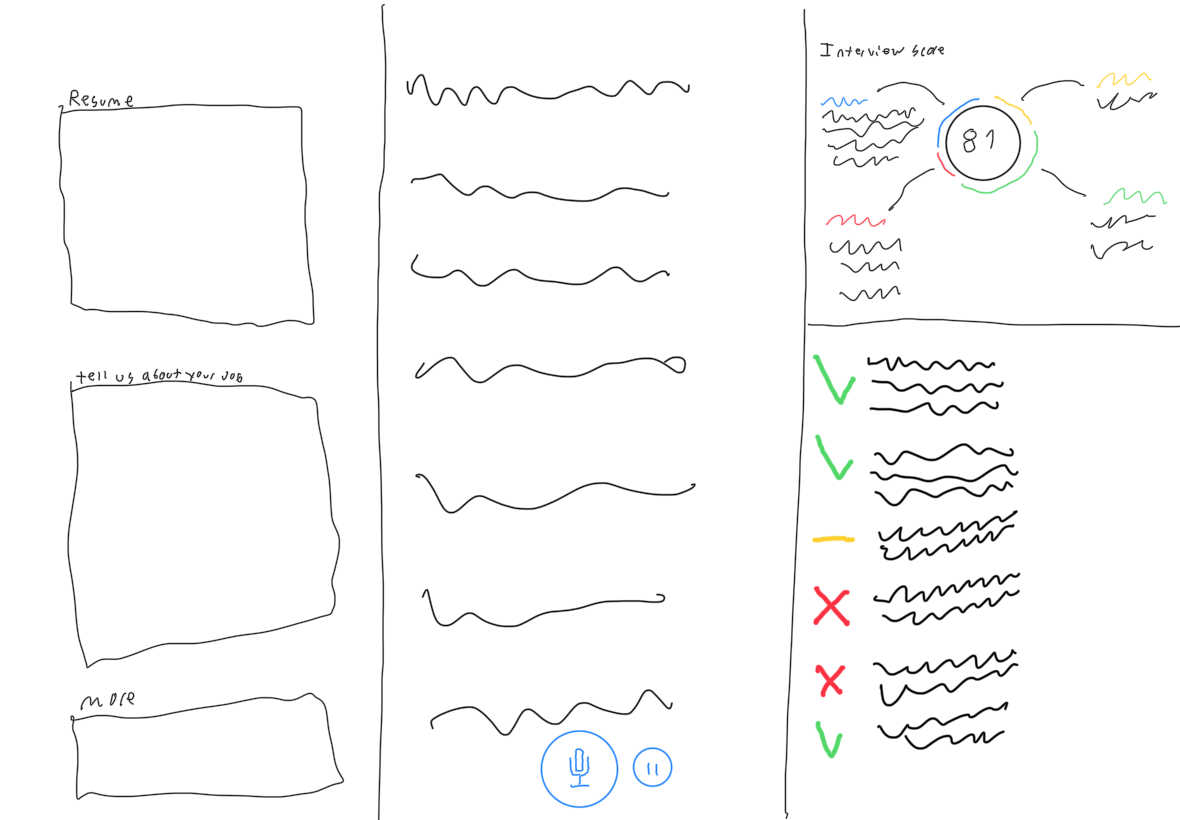 Resume
tell us about your Job
more
Interview score
81